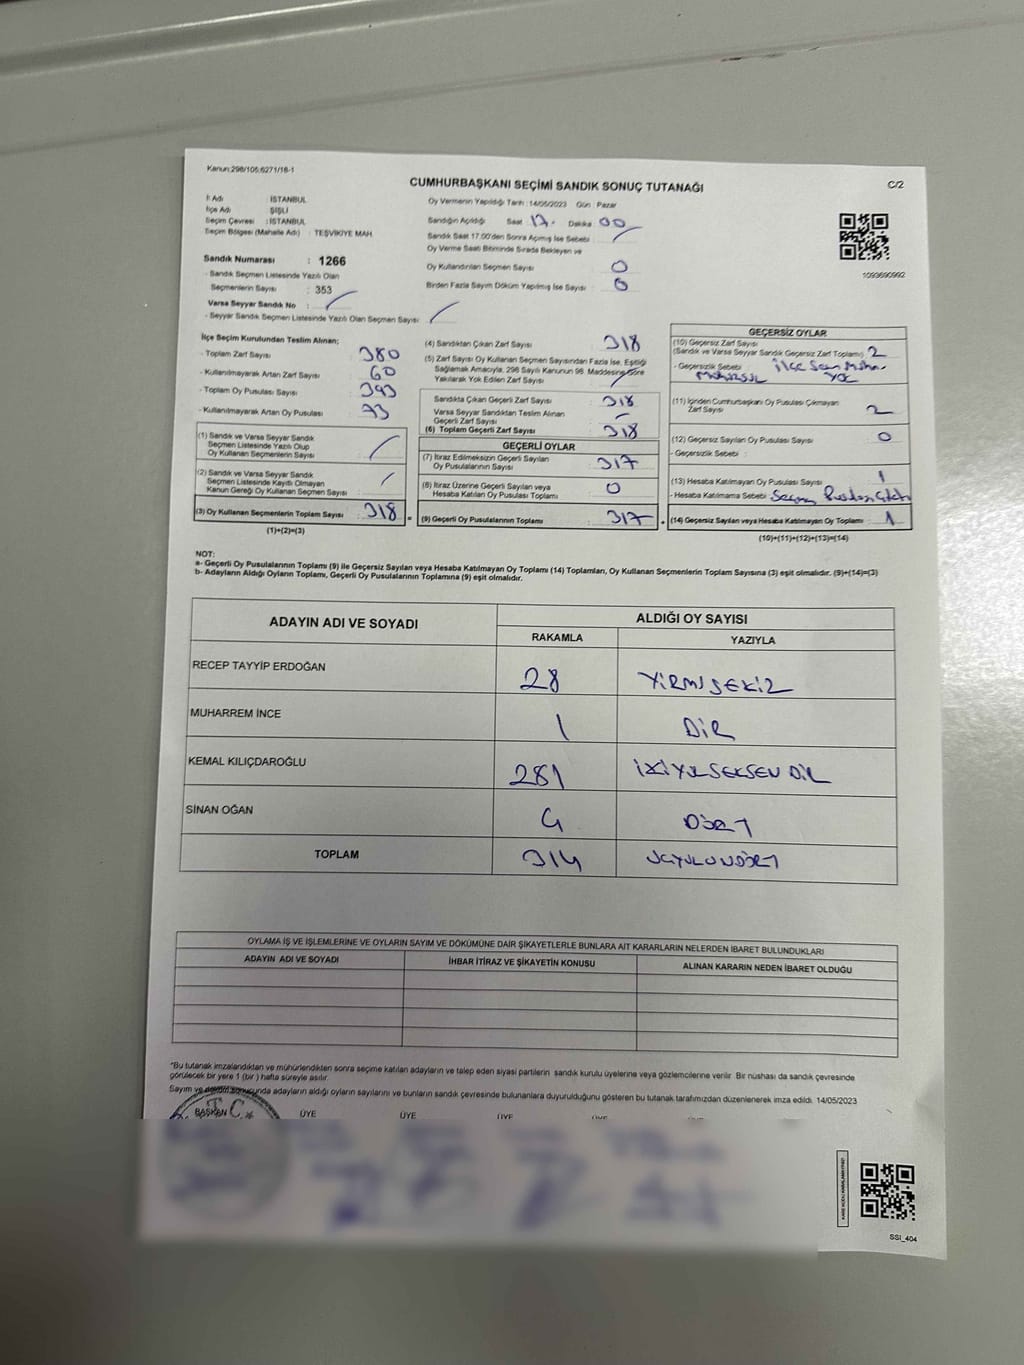 Kanun:298/105;6271/18-1
CUMHURBAŞKANI SEÇİMİ SANDIK SONUÇ TUTANAĞI
C/2
İl Adı : İSTANBUL
İlçe Adı : ŞİŞLİ
Seçim Çevresi : İSTANBUL
Seçim Bölgesi (Mahalle Adı) : TEŞVİKİYE MAH.
Sandık Numarası : 1266
- Sandık Seçmen Listesinde Yazılı Olan
Seçmenlerin Sayısı : 353
Varsa Seyyar Sandık No :
- Seyyar Sandık Seçmen Listesinde Yazılı Olan Seçmen Sayısı :
Oy Vermenin Yapıldığı Tarih : 14/05/2023 Gün : Pazar
Sandığın Açıldığı Saat 17. Dakika 00
Sandık Saat 17.00'den Sonra Açılmış İse Sebebi
Oy Verme Saati Bitiminde Sırada Bekleyen ve
Oy Kullandırılan Seçmen Sayısı : 0
Birden Fazla Sayım Döküm Yapılmış İse Sayısı : 0
1093690992
İlçe Seçim Kurulundan Teslim Alınan;
- Toplam Zarf Sayısı : 380
- Kullanılmayarak Artan Zarf Sayısı : 60
- Toplam Oy Pusulası Sayısı : 393
- Kullanılmayarak Artan Oy Pusulası : 73
(1) Sandık ve Varsa Seyyar Sandık
Seçmen Listesinde Yazılı Olup
Oy Kullanan Seçmenlerin Sayısı :
(2) Sandık ve Varsa Seyyar Sandık
Seçmen Listesinde Kayıtlı Olmayan
Kanun Gereği Oy Kullanan Seçmen Sayısı :
(3) Oy Kullanan Seçmenlerin Toplam Sayısı : 318
(1)+(2)=(3)
(4) Sandıktan Çıkan Zarf Sayısı : 318
(5) Zarf Sayısı Oy Kullanan Seçmen Sayısından Fazla İse, Eşitliği
Sağlamak Amacıyla, 298 Sayılı Kanunun 98. Maddesine Göre
Yakılarak Yok Edilen Zarf Sayısı :
Sandıkta Çıkan Geçerli Zarf Sayısı : 318
Varsa Seyyar Sandıktan Teslim Alınan
Geçerli Zarf Sayısı : -
(6) Toplam Geçerli Zarf Sayısı : 318
GEÇERLİ OYLAR
(7) İtiraz Edilmeksizin Geçerli Sayılan
Oy Pusulalarının Sayısı : 317
(8) İtiraz Üzerine Geçerli Sayılan veya
Hesaba Katılan Oy Pusulası Toplamı : 0
(9) Geçerli Oy Pusulalarının Toplamı : 317
GEÇERSİZ OYLAR
(10) Geçersiz Zarf Sayısı
(Sandık ve Varsa Seyyar Sandık Geçersiz Zarf Toplamı) : 2
- Geçersizlik Sebebi : İlçe Seçim
YOK
(11) İçinden Cumhurbaşkanı Oy Pusulası Çıkmayan
Zarf Sayısı : 2
(12) Geçersiz Sayılan Oy Pusulası Sayısı : 0
- Geçersizlik Sebebi :
(13) Hesaba Katılmayan Oy Pusulası Sayısı : 1
- Hesaba Katılmama Sebebi :
(14) Geçersiz Sayılan veya Hesaba Katılmayan Oy Toplamı : 1
(10)+(11)+(12)+(13)=(14)
NOT:
a- Geçerli Oy Pusulalarının Toplamı (9) ile Geçersiz Sayılan veya Hesaba Katılmayan Oy Toplamı (14) Toplamları, Oy Kullanan Seçmenlerin Toplam Sayısına (3) eşit olmalıdır. (9)+(14)=(3)
b- Adayların Aldığı Oyların Toplamı, Geçerli Oy Pusulalarının Toplamına (9) eşit olmalıdır.
ADAYIN ADI VE SOYADI
ALDIĞI OY SAYISI
RAKAMLA YAZIYLA
RECEP TAYYİP ERDOĞAN 28 YİRMİSEKİZ
MUHARREM İNCE 1 BİR
KEMAL KILIÇDAROĞLU 281 İKİYÜZSEKSEN BİR
SİNAN OĞAN 4 DÖRT
TOPLAM 314 ÜÇYÜZONDÖRT
OYLAMA İŞ VE İŞLEMLERİNE VE OYLARIN SAYIM VE DÖKÜMÜNE DAİR ŞİKAYETLERLE BUNLARA AİT KARARLARIN NELERDEN İBARET BULUNDUKLARI
ADAYIN ADI VE SOYADI İHBAR İTİRAZ VE ŞİKAYETİN KONUSU ALINAN KARARIN NEDEN İBARET OLDUĞU
"Bu tutanak imzalandıktan ve mühürlendikten sonra seçime katılan adayların ve talep eden siyasi partilerin sandık kurulu üyelerine veya gözlemcilerine verilir. Bir nüshası da sandık çevresinde
görülecek bir yere 1 (bir ) hafta süreyle asılır.
Sayım ve döküm sonucunda adayların aldığı oyların sayılarını ve bunların sandık çevresinde bulunanlara duyurulduğunu gösteren bu tutanak tarafımızdan düzenlenerek imza edildi. 14/05/2023
T.C.
BAŞKAN ÜYE ÜYE ÜYE ÜYE
SSI_404